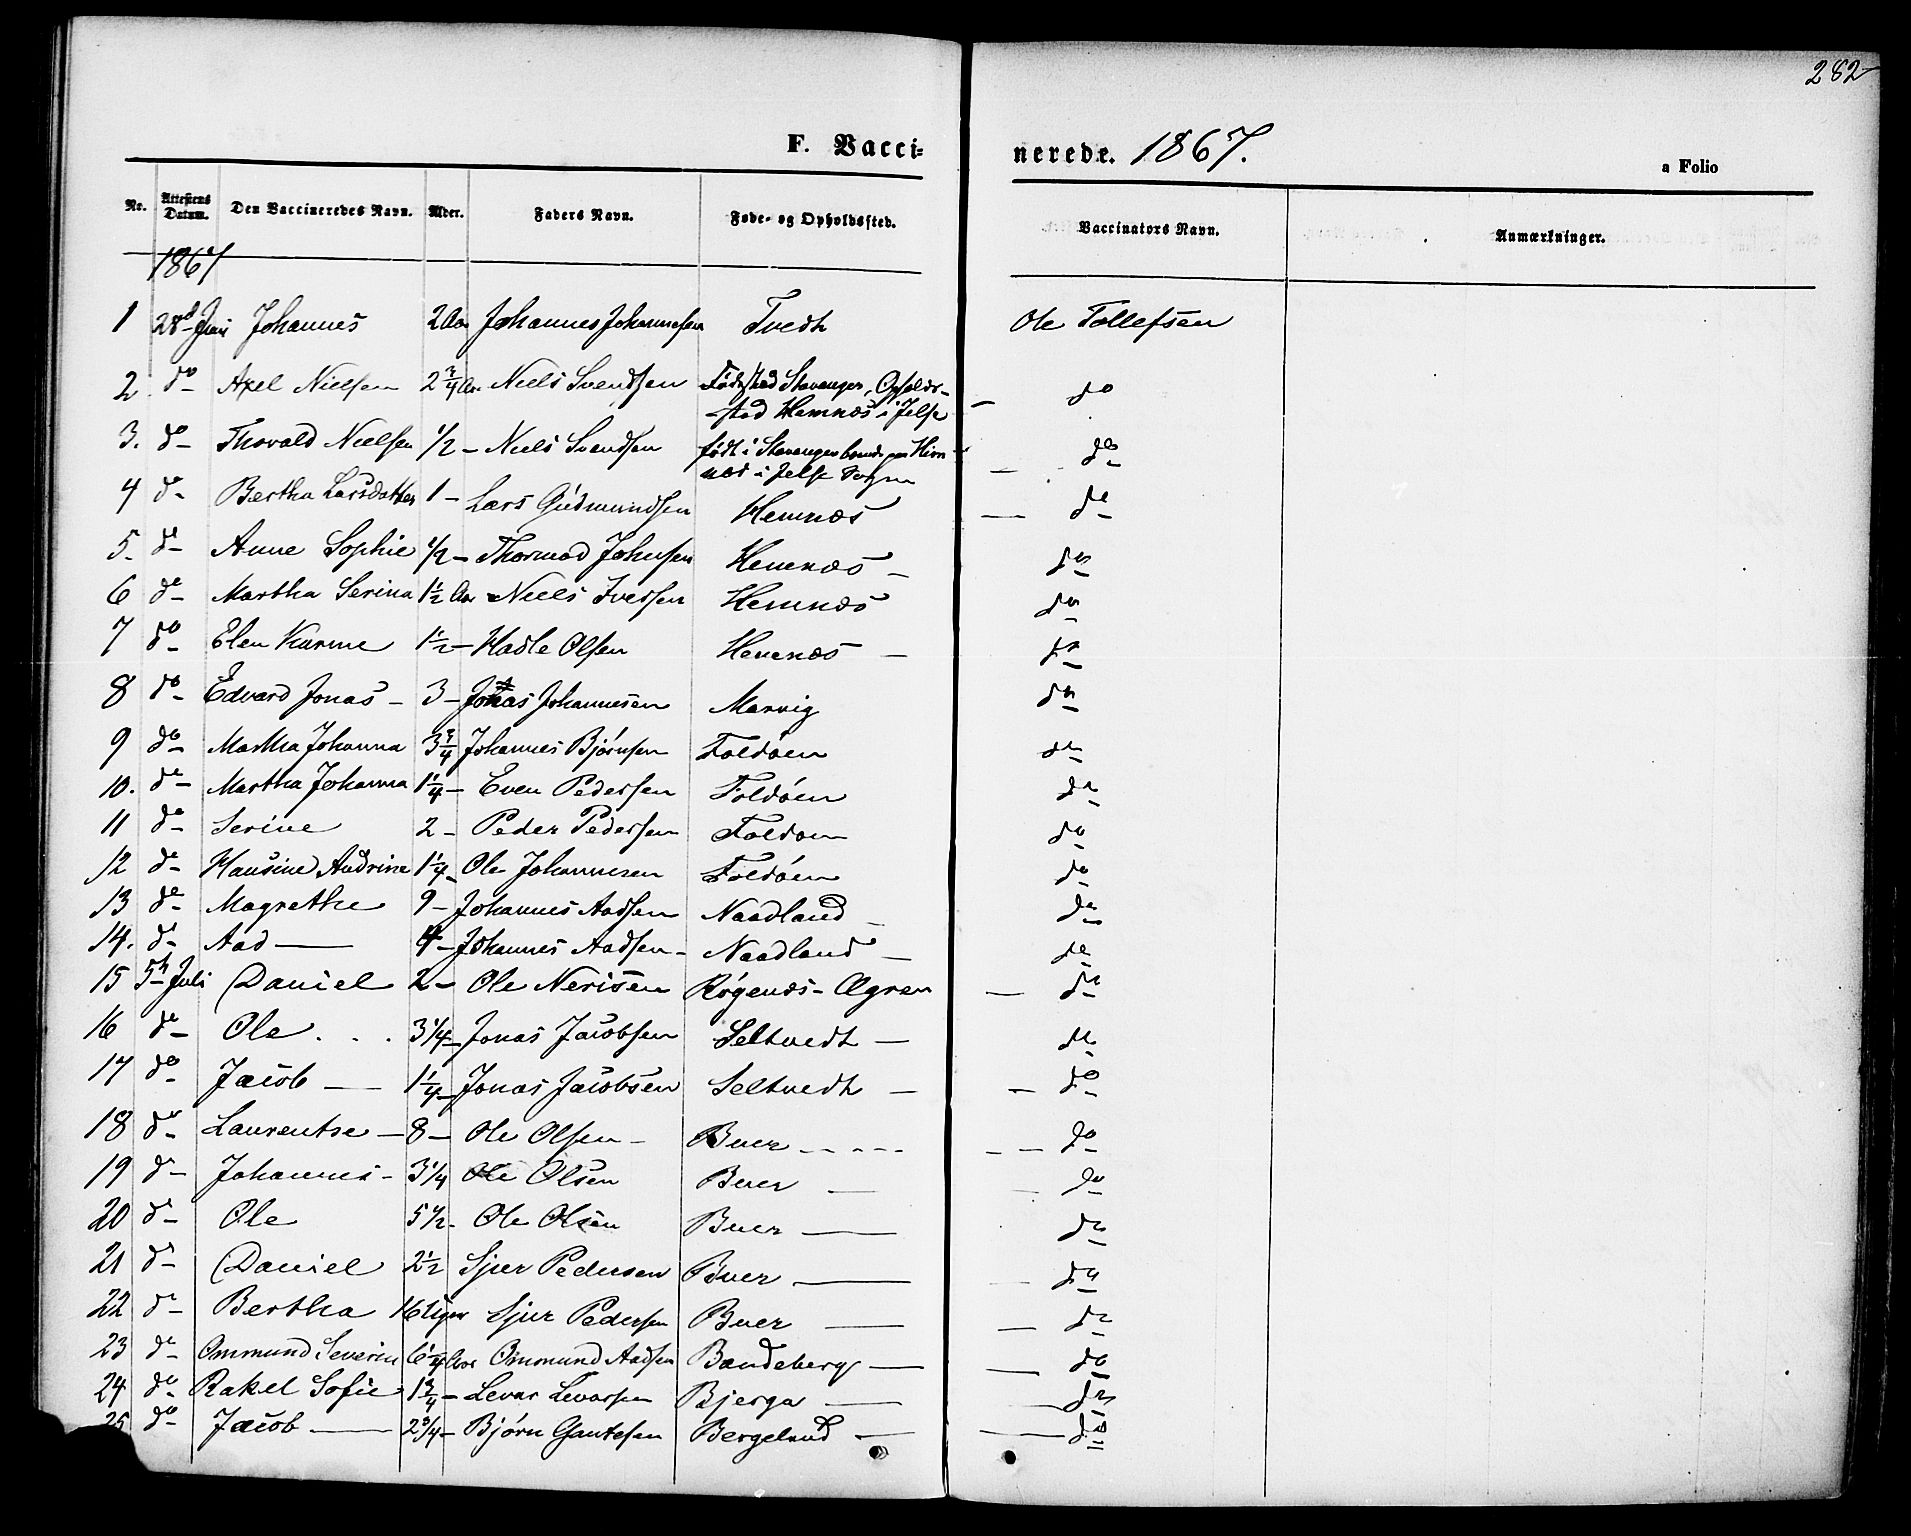 282
F. Vacci- nerede. 1867. a Folio
Nr. Attestens Datum. Den Vaccineredes Navn. Alder. Faders Navn. Føde- og Opholdssted. Vaccinators Navn. Anmærkninger.
1867
1 28d Juni Johannes 2 Aar Johannes Johannesen Tvedt Ole Tollefsen
2. do Axel Nielsen 2 3/4 Aar Niels Svendsen Födested Stavanger, Opholds- do
-sted Hemnæs i Jelse
3. do Thorvald Nielsen 1/2 - Niels Svendsen født i Stavanger do
i Jelse Sogn
4 do Bertha Larsdatter 1 - Lars Gudmundsen Hemnæs do
5. do Anne Sophie 1/2 - Thormod Johnsen Hemnæs - do
6 do Martha Serina 1 1/2 Aar Niels Iversen Hemnæs do
7 do Elen Karine 1 1/2 - Hadle Olsen Hemnæs - do
8 do Edvard Jonas - 3 - Jonas Johannesen Marvig do
9 do Martha Johanna 3 3/4 Johannes Bjørnsen Foldøen do
10. do Martha Johanna 1 1/4 - Even Pedersen Foldöen do
11 do Serine 2 - Peder Pedersen Foldoen do
12 do Hansine Andrine 1 1/4 - Ole Johannesen Foldöen do
13 do Magrethe 9 - Johannes Aadsen Naadland - do
14. do Aad — 4 - Johannes Aadsen - Naadland - do
15 5th Juli Daniel 2 - Ole Nerisen Røgenæs - Øgren do
16 do Ole . . . 3 1/4 - Jonas Jacobsen Seltvedt - do
17 do Jacob — 1 1/4 - Jonas Jacobsen Seltvedt - do
18 do Laurentse - 8 - Ole Olsen - Buer - - - - do
19 do Johannes - 3 1/4 Ole Olsen Buer — do
20 do Ole 5 1/2 - Ole Olsen Buer — do
21 do Daniel 2 1/2 Sjur Pedersen Buer — do
22 do Bertha 16 Uger Sjur Pedersen Buer — do
23 do Ommund Severin 6 1/4 Aar Ommund Aadsen Bandeberg — do
24 do Rakel Sofie 1 3/4 - Levar Levarsen Bjerga — do
25 do Jacob — 2 3/4 - Bjørn Gautesen Bergeland — do